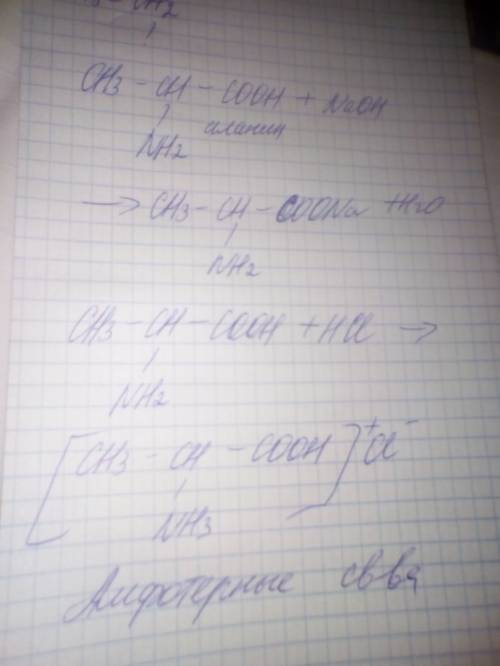 NH2
CH3 - CH - COOH + NaOH
NH2 аланин
→ CH3 - CH - COONa + H2O
NH2
CH3 - CH - COOH + HCl →
NH2
[CH3 - CH - COOH]⁺Cl⁻
NH3
Амфотерные св-ва